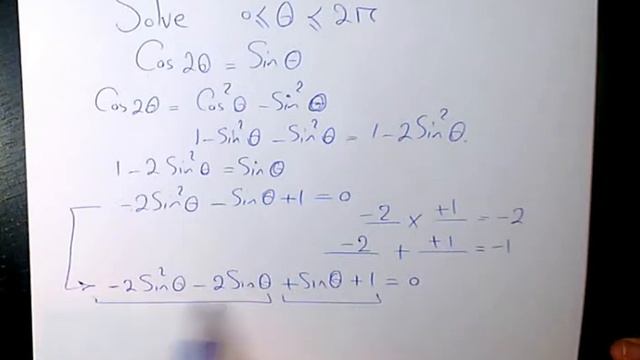 Solve 0 ≤ θ ≤ 2π
Cos 2θ = Sin θ
Cos 2θ = Cos²θ - Sin²θ
1 - Sin²θ - Sin²θ = 1 - 2 Sin²θ.
1 - 2 Sin²θ = Sin θ
-2 Sin²θ - Sin θ + 1 = 0
-2 × +1 = -2
-2 + +1 = -1
-2 Sin²θ - 2 Sin θ + Sin θ + 1 = 0